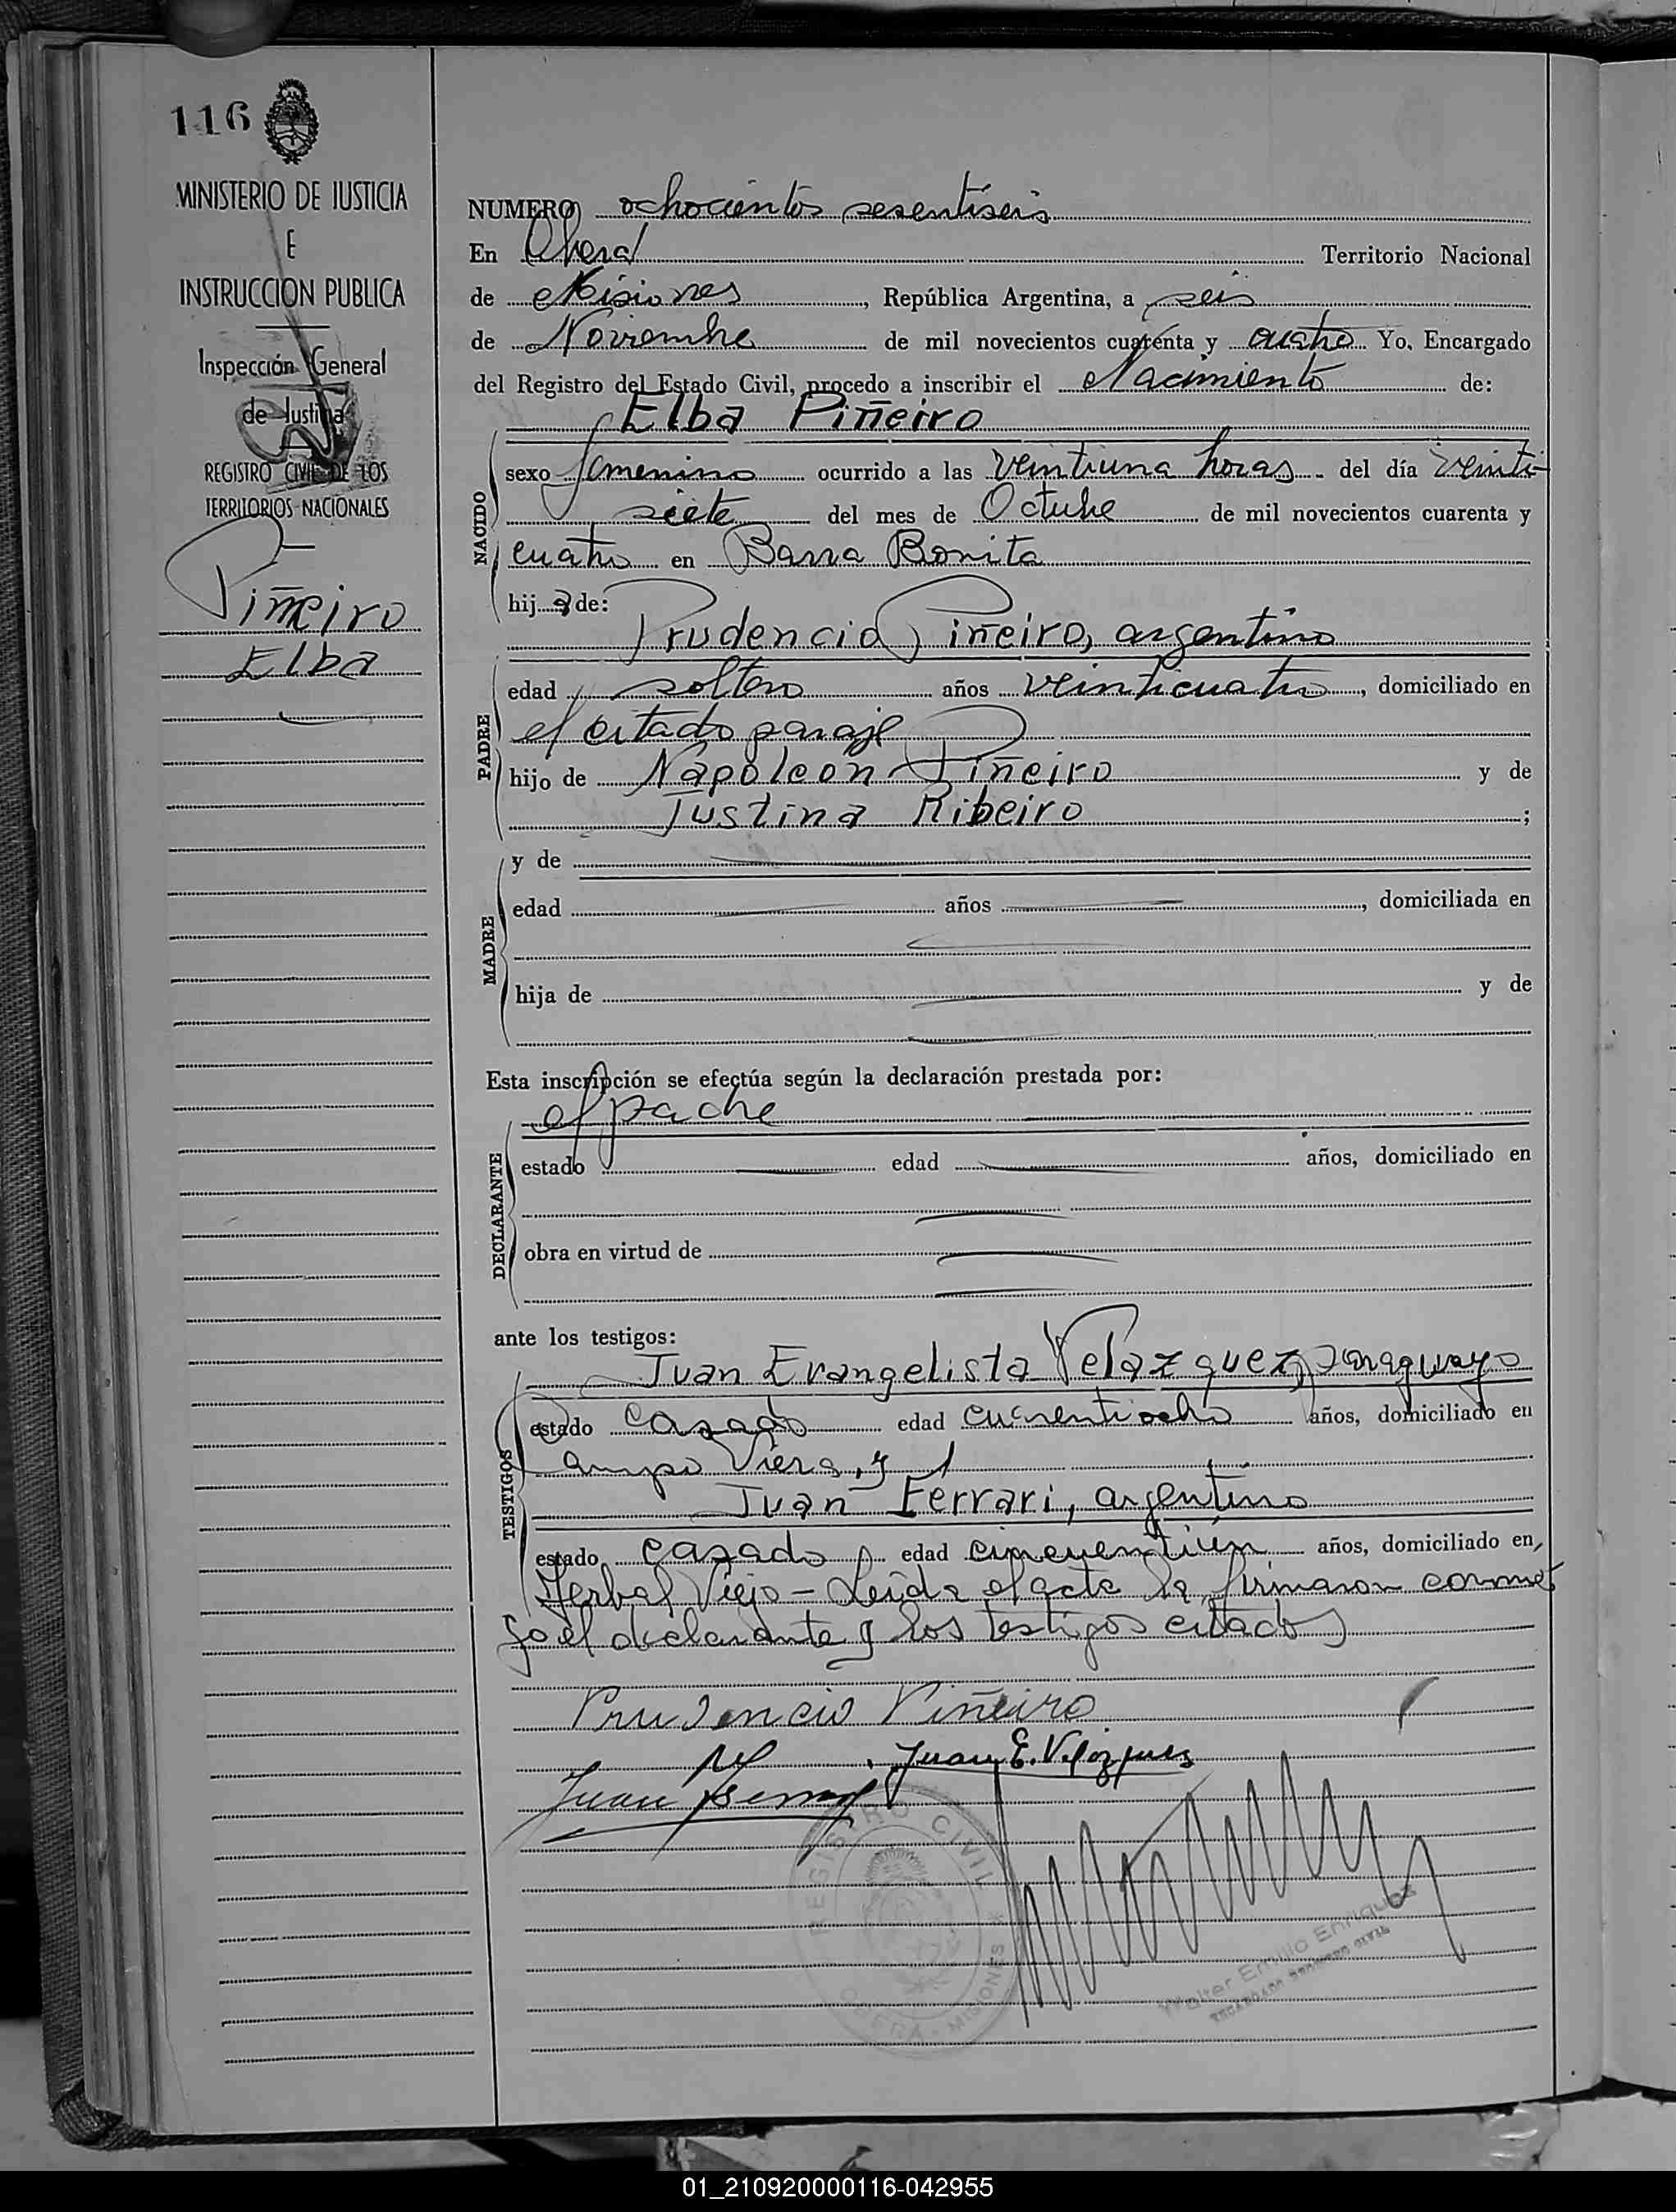 116
MINISTERIO DE JUSTICIA
E
INSTRUCCION PUBLICA
Inspección General
de Justicia
REGISTRO CIVIL DE LOS
TERRITORIOS NACIONALES
Piñeiro
Elba
NUMERO ochocientos sesentiseis
En Oberá Territorio Nacional
de Misiones, República Argentina, a seis
de Noviembre de mil novecientos cuarenta y cuatro Yo, Encargado
del Registro del Estado Civil, procedo a inscribir el Nacimiento de:
Elba Piñeiro
NACIDO
sexo femenino ocurrido a las veintiuna horas - del día veinti-
siete del mes de Octubre de mil novecientos cuarenta y
cuatro en Barra Bonita
hija de:
Prudencio Piñeiro, argentino
PADRE
edad soltero años veinticuatro, domiciliado en
el citado paraje
hijo de Napoleón Piñeiro y de
Justina Ribeiro;
MADRE
y de
edad años, domiciliada en
hija de y de
Esta inscripción se efectúa según la declaración prestada por:
el padre
DECLARANTE
estado edad años, domiciliado en
obra en virtud de
ante los testigos:
Juan Evangelista Velazquez, paraguayo
TESTIGOS
estado casado edad cuarentiocho años, domiciliado en
Campo Viera, y
Juan Ferrari, argentino
estado casado, edad cincuentiún años, domiciliado en
Yerbal Viejo - Leída el acta la firmaron conmi
go el declarante y los testigos citados
Prudencio Piñeiro
Juan E. Velázquez
Juan Ferrari
REGISTRO CIVIL
OBERA - MISIONES
Walter Emilio Enriquez
ENCARGADO REGISTRO CIVIL
01_210920000116-042955